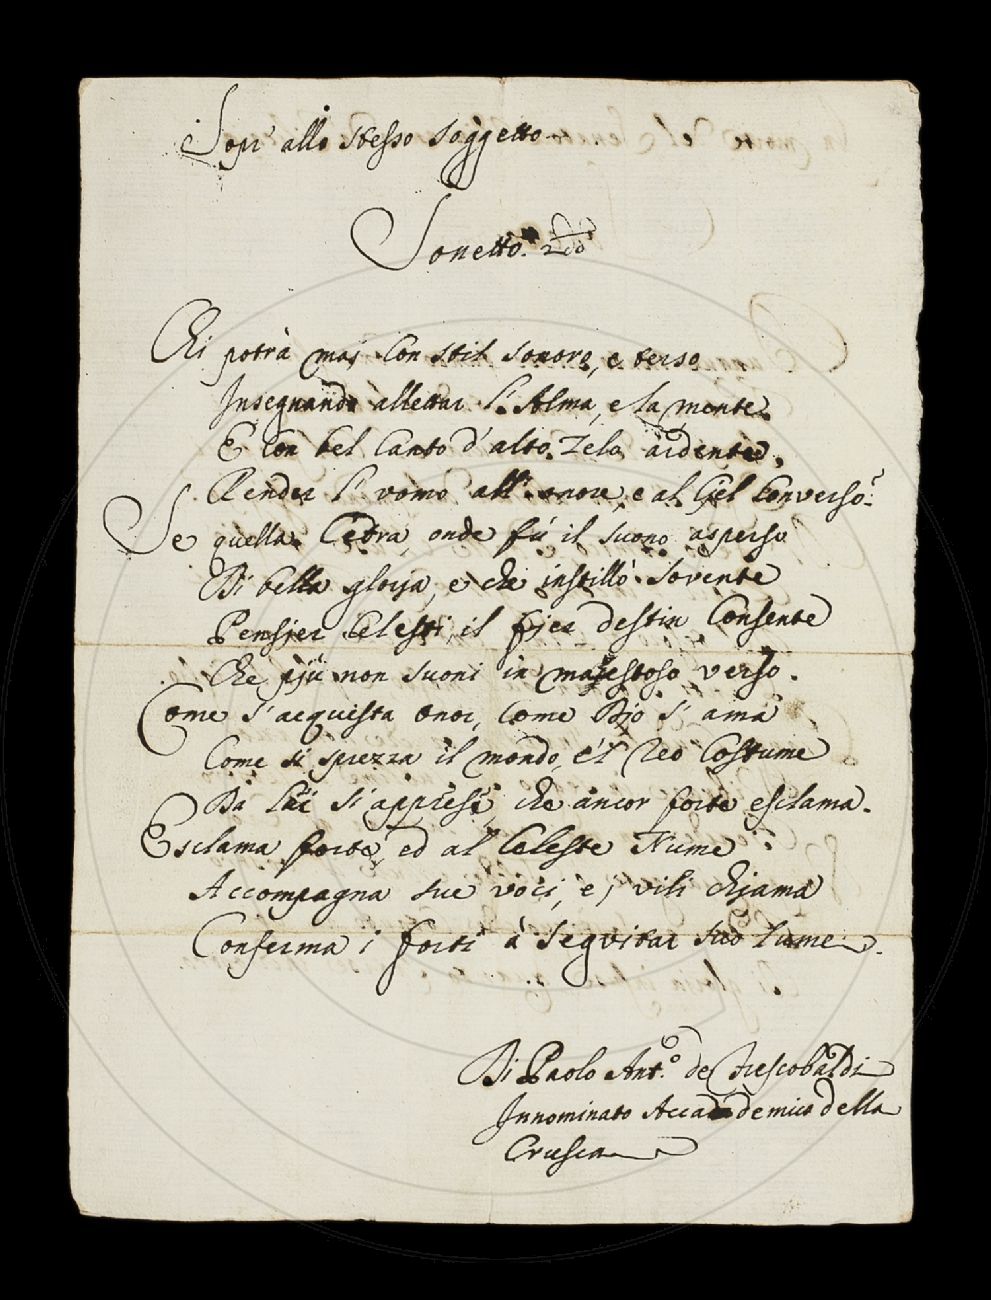 Sopr' allo stesso soggetto
Sonetto. 2do
Chi potrà maj con stil sonoro, e terso
Insegnando allettar l'Alma, e la mente
E con bel Canto d'alto Zelo ardente,
Render l'vomo all'onore, e al Ciel Converso:
Se quella Cetra, onde fù il suono asperso
Di bella gloria, e che instillò Sovente
Pensjer Celesti, il fjer destin Consente
Che pjù non suoni in majestoso verso.
Come s'acquista Onor, come Djo s'ama
Come si sprezza il mondo, e'l reo Costume
Da lui s'apprese, che ancor forte esclama.
Esclama forte, ed al Celeste Nume
Accompagna sue voci, e j vili chjama
Conferma i forti à Seguitar suo lume.
Di Paolo Ant.o de Frescobaldi
Innominato Accademico della
Crusca